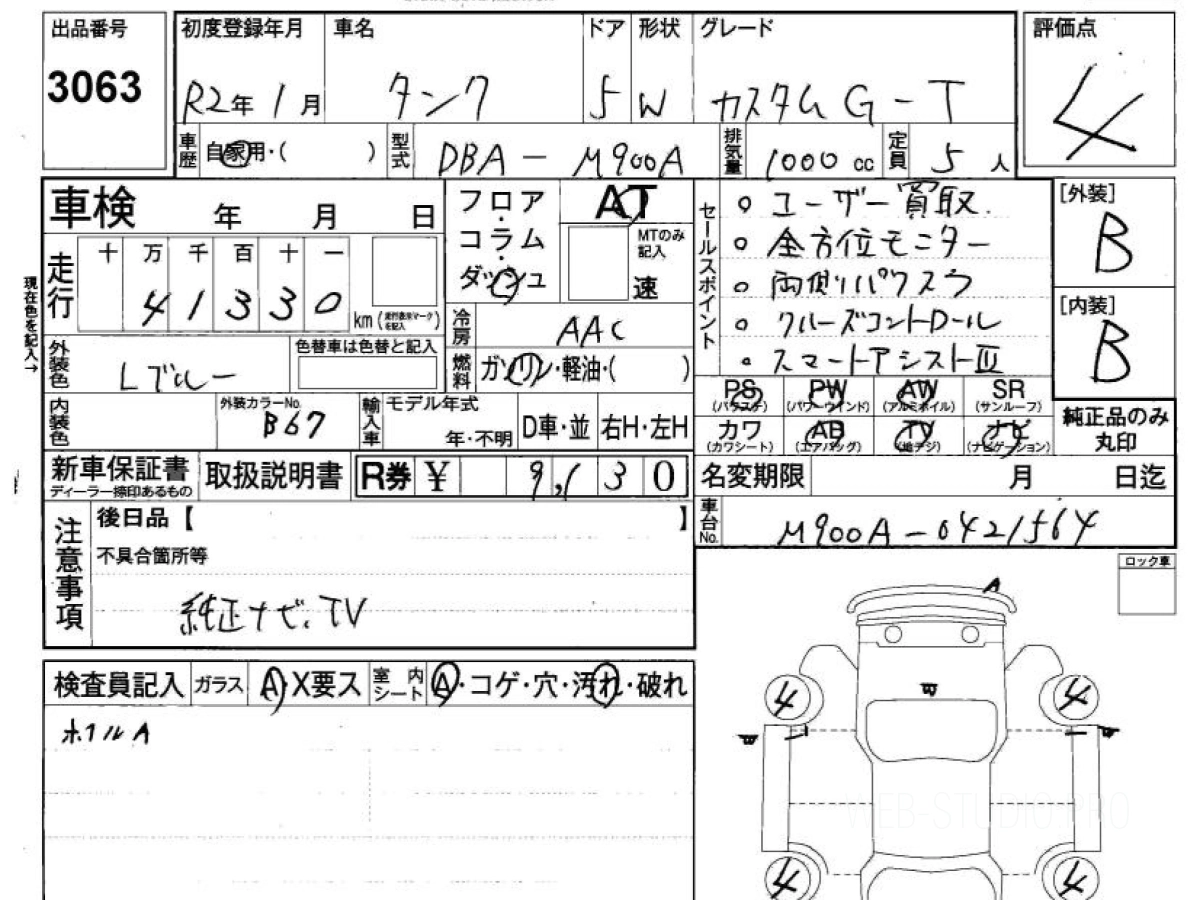 出品番号
3063
初度登録年月 車名 ドア 形状 グレード
R2年 1月 タンク 5 W カスタムG-T
評価点
4
車歴 自家用・( ) 型式 DBA-M900A 排気量 1000 cc 定員 5人
車検 年 月 日
フロア・コラム・ダッシュ
AT
MTのみ記入
速
セールスポイント
○ユーザー買取.
○全方位モニター
○両側パワスラ
○クルーズコントロール
○スマートアシストⅢ
[外装]
B
[内装]
B
現在色を記入→
走行 十 万 千 百 十 一
4 1 3 3 0 km (走行表示マークを記入)
冷房 AAC
外装色 Lブルー
色替車は色替と記入
燃料 ガソリン・軽油・( )
内装色
外装カラーNo.
B67
輸入車 モデル年式
年・不明 D車・並 右H・左H
PS (パワステ) PW (パワーウインド) AW (アルミホイル) SR (サンルーフ)
カワ (カワシート) AB (エアバック) TV (地デジ) ナビ (ナビゲーション)
純正品のみ丸印
新車保証書
ディーラー捺印あるもの
取扱説明書
R券 ¥ 9,130
名変期限 月 日迄
車台No. M900A-0421564
注意事項
後日品【 】
不具合箇所等
純正ナビ、TV
ロック車
A
検査員記入 ガラス A・X要ス 室内シート A・コゲ・穴・汚れ・破れ
ホイルA
4 4
4 4
WEB-STUDIO.PRO